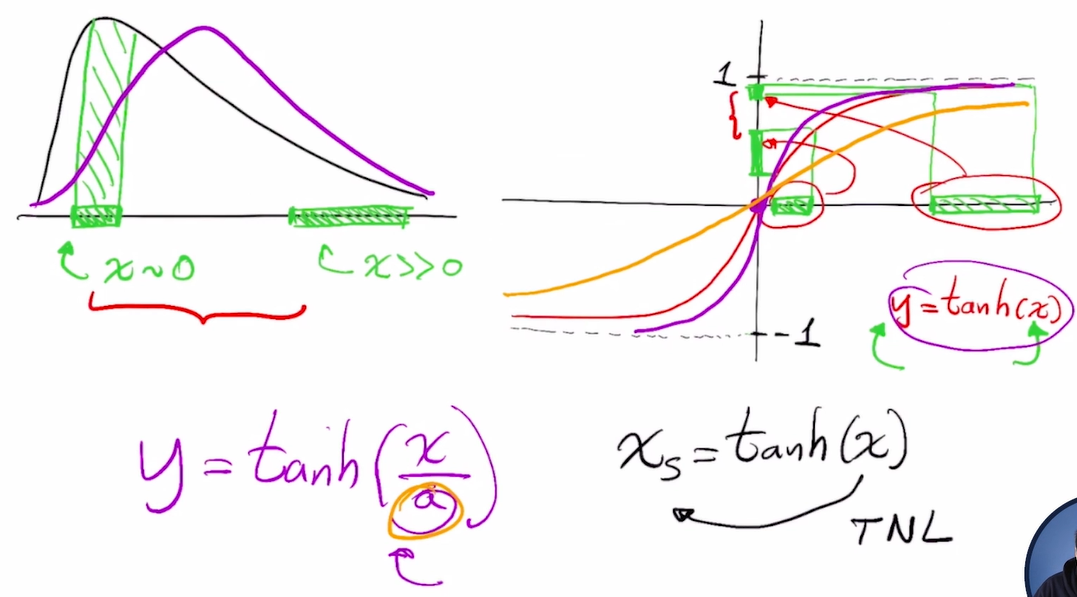 1
x ~ 0
x >> 0
y = tanh(x)
-1
y = tanh(x/a)
x_s = tanh(x)
TNL